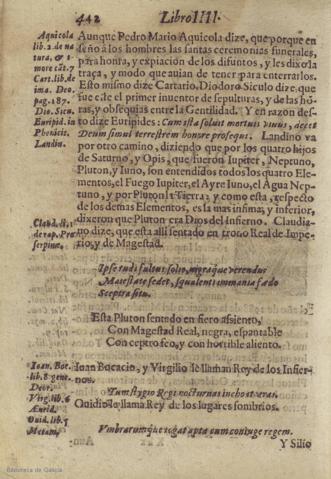 442 Libro IIII.
Aquicola
lib. 2. de na
tura, & ti
more c. 27.
Cart. lib. de
ima. Deo.
pag. 187.
Dio. Sicu.
Euripid. in
Phenicis.
Landin.
Aunque Pedro Mario Aquicola dize, que porque en
señó a los hombres las santas ceremonias funerales,
para honra, y expiacion de los difuntos, y les dixo la
traça, y modo que auian de tener para enterrarlos.
Esto mismo dize Cartario. Diodoro Siculo dize que
fue este el primer inuentor de sepulturas, y de las hõ-
ras, y obsequias entre la Gentilidad. Y en razon des-
to dize Euripides: Cum asta soluit mortuis viuus, decet
Deum simul terrestrem honore prosequi. Landino va
por otro camino, diziendo que por los quatro hijos
de Saturno, y Opis, que fueron Iupiter, Neptuno,
Pluton, y Iuno, son entendidos todos los quatro Ele-
mentos, el Fuego Iupiter, el Ayre Iuno, el Agua Nep-
tuno, y por Pluton la Tierra; y como esta, respecto
de los demas Elementos, es la mas infima, y inferior,
dixeron que Pluton era Dios del Infierno. Claudia-
no dize, que està alli sentado en trono Real de Impe-
rio, y de Magestad.
Claud. li. 1.
de rap. Pro
serpinæ.
Ipse rudi fultus solio, nigraque verendus
Maiestate sedet, squalent immania fœdo
Sceptra situ.
Esta Pluton sentado en fiero assiento,
Con Magestad Real, negra, espantable
Con ceptro feo, y con horrible aliento.
Ioan. Boc.
lib. 8. gene.
Deor.
Virg. lib. 6
Æneid.
Ouid. lib. 7
Metam.
Ioan Bocacio, y Virgilio le llaman Rey de los Infier-
nos.
Tum Stygio Regi nocturnas inchoat aras.
Ouidio le llama Rey de los lugares sombrios.
Vmbrarumque rogat rapta cum coniuge regem.
Y Silio
Biblioteca de Galicia